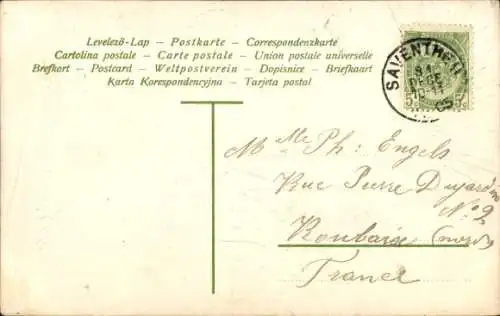 Levelező-Lap – Postkarte – Correspondenzkarte
Cartolina postale – Carte postale – Union postale universelle
Brefkort – Postcard – Weltpostverein – Dopisnice – Briefkaart
Karta Korespondencyjna – Tarjeta postal
SAVENTHEM
31
DECE
10-11
05
5 5
Mr Me Ph: Engels
Rue Pierre Dujardin
No 2
Roubaix (nord)
France